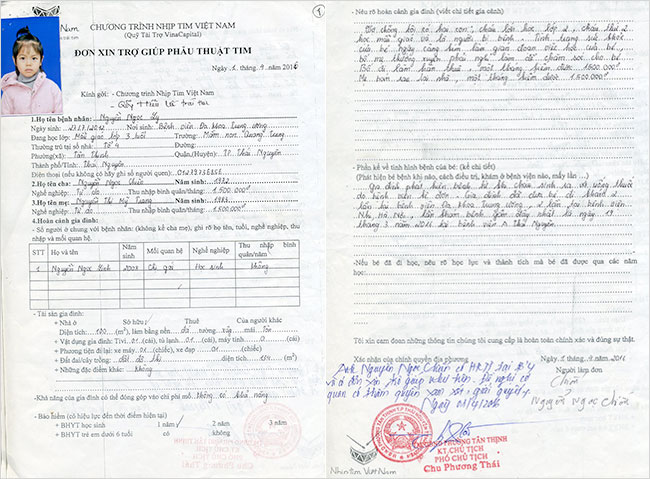 CHƯƠNG TRÌNH NHỊP TIM VIỆT NAM
(Quỹ Tài Trợ VinaCapital)
ĐƠN XIN TRỢ GIÚP PHẪU THUẬT TIM
Ngày 1 tháng 4 năm 2016
Kính gởi: - Chương trình Nhịp Tim Việt Nam
1.Họ tên bệnh nhân: Nguyễn Ngọc
Ngày sinh: Nơi sinh: Bệnh viện Đa khoa trung ương
Đang học lớp: Mẫu giáo lớp 3 tuổi Trường: Mầm non Quang Trung
Thường trú tại số nhà: Tổ 4 Đường:
Phường(xã): Tân Thịnh Quận/Huyện: TP Thái Nguyên
Thành phố/Tỉnh: Thái Nguyên
Điện thoại (nếu không có hãy ghi số người quen):
2.Họ tên cha: Nguyễn Ngọc Chiến Năm sinh:
Nghề nghiệp: Tự do Thu nhập bình quân/tháng: 1.500.000đ
3.Họ tên mẹ: Nguyễn Thị Mỹ Trang Năm sinh:
Nghề nghiệp: Tự do Thu nhập bình quân/tháng: 1.500.000đ
4.Hoàn cảnh gia đình:
- Số người ở chung với bệnh nhân: (không kể cha mẹ), ghi rõ họ tên, tuổi, nghề nghiệp, thu
nhập và mối quan hệ.
STT Họ và tên Năm sinh Mối quan hệ Nghề nghiệp Thu nhập bình quân/năm
1 Nguyễn Ngọc Chị gái Học sinh không
- Tài sản gia đình:
+ Nhà ở Sở hữu Thuê Của người khác
Diện tích: 100 (m²), làm bằng nền đá tường xây, mái tôn
+ Vật dụng gia đình: Tivi 01 (cái) tủ lạnh, 01 (cái), máy tính 0 (cái)
+ Phương tiện đi lại: xe máy 01 (chiếc), xe đạp 01 (chiếc)
+ Đất đai/cây trồng: đất đô thị diện tích (m²)
+ Những đặc điểm khác: không
-Khả năng của gia đình có thể đóng góp vào chi phí mổ: không có khả năng
- Bảo hiểm (có hiệu lực đến thời điểm hiện tại)
+ BHYT học sinh 1 năm 2 năm 3 năm
+ BHYT trẻ em dưới 6 tuổi có không
- Nêu rõ hoàn cảnh gia đình (viết chi tiết gia cảnh)
Vợ chồng tôi có hai con, cháu lớn học lớp 2, cháu thứ 2
học mẫu giáo và là người bị bệnh. Tình trạng sức khoẻ
của bé ngày càng kém làm gián đoạn việc học của bé,
bố mẹ thường xuyên phải nghỉ làm để chăm sóc cho bé
Bố đi làm một tháng kiếm được 1500.000đ
một tháng kiếm được 1.500.000đ
- Phần kể về tình hình bệnh của bé: (kể chi tiết)
(Phát hiện bé bệnh khi nào, cách điều trị, khám ở bệnh viện nào, mấy lần ...)
Gia đình phát hiện bệnh từ khi cháu sinh ra và uống thuốc
do bệnh viện kê đơn. Gia đình đã đưa bé đi khám 2
lần tại bệnh viện Đa khoa trung ương, lần tại bệnh viện
Nhi, Hà Nội, lần khám bệnh gần đây nhất là ngày 17
tháng 3 năm 2016 tại bệnh viện A Thái Nguyên
-Nếu bé đã đi học, nêu rõ học lực và thành tích mà bé đã được qua các năm
học:
Tôi xin cam đoan những thông tin tôi cung cấp là hoàn toàn chính xác và đúng sự thật.
Xác nhận của chính quyền địa phương Ngày 1 tháng 4 năm 2016
Người làm đơn
Anh Nguyễn Ngọc Chiến có HKTT tại
và có đơn xin trợ giúp như trên. Đề nghị cơ
quan có thẩm quyền xem xét, giải quyết
Ngày 01/4/2016
Chiến
Nguyễn Ngọc Chiến
PHƯỜNG TÂN THỊNH
KT. CHỦ TỊCH
PHÓ CHỦ TỊCH
Chu Phương Thái
Nhịp Tim Việt Nam